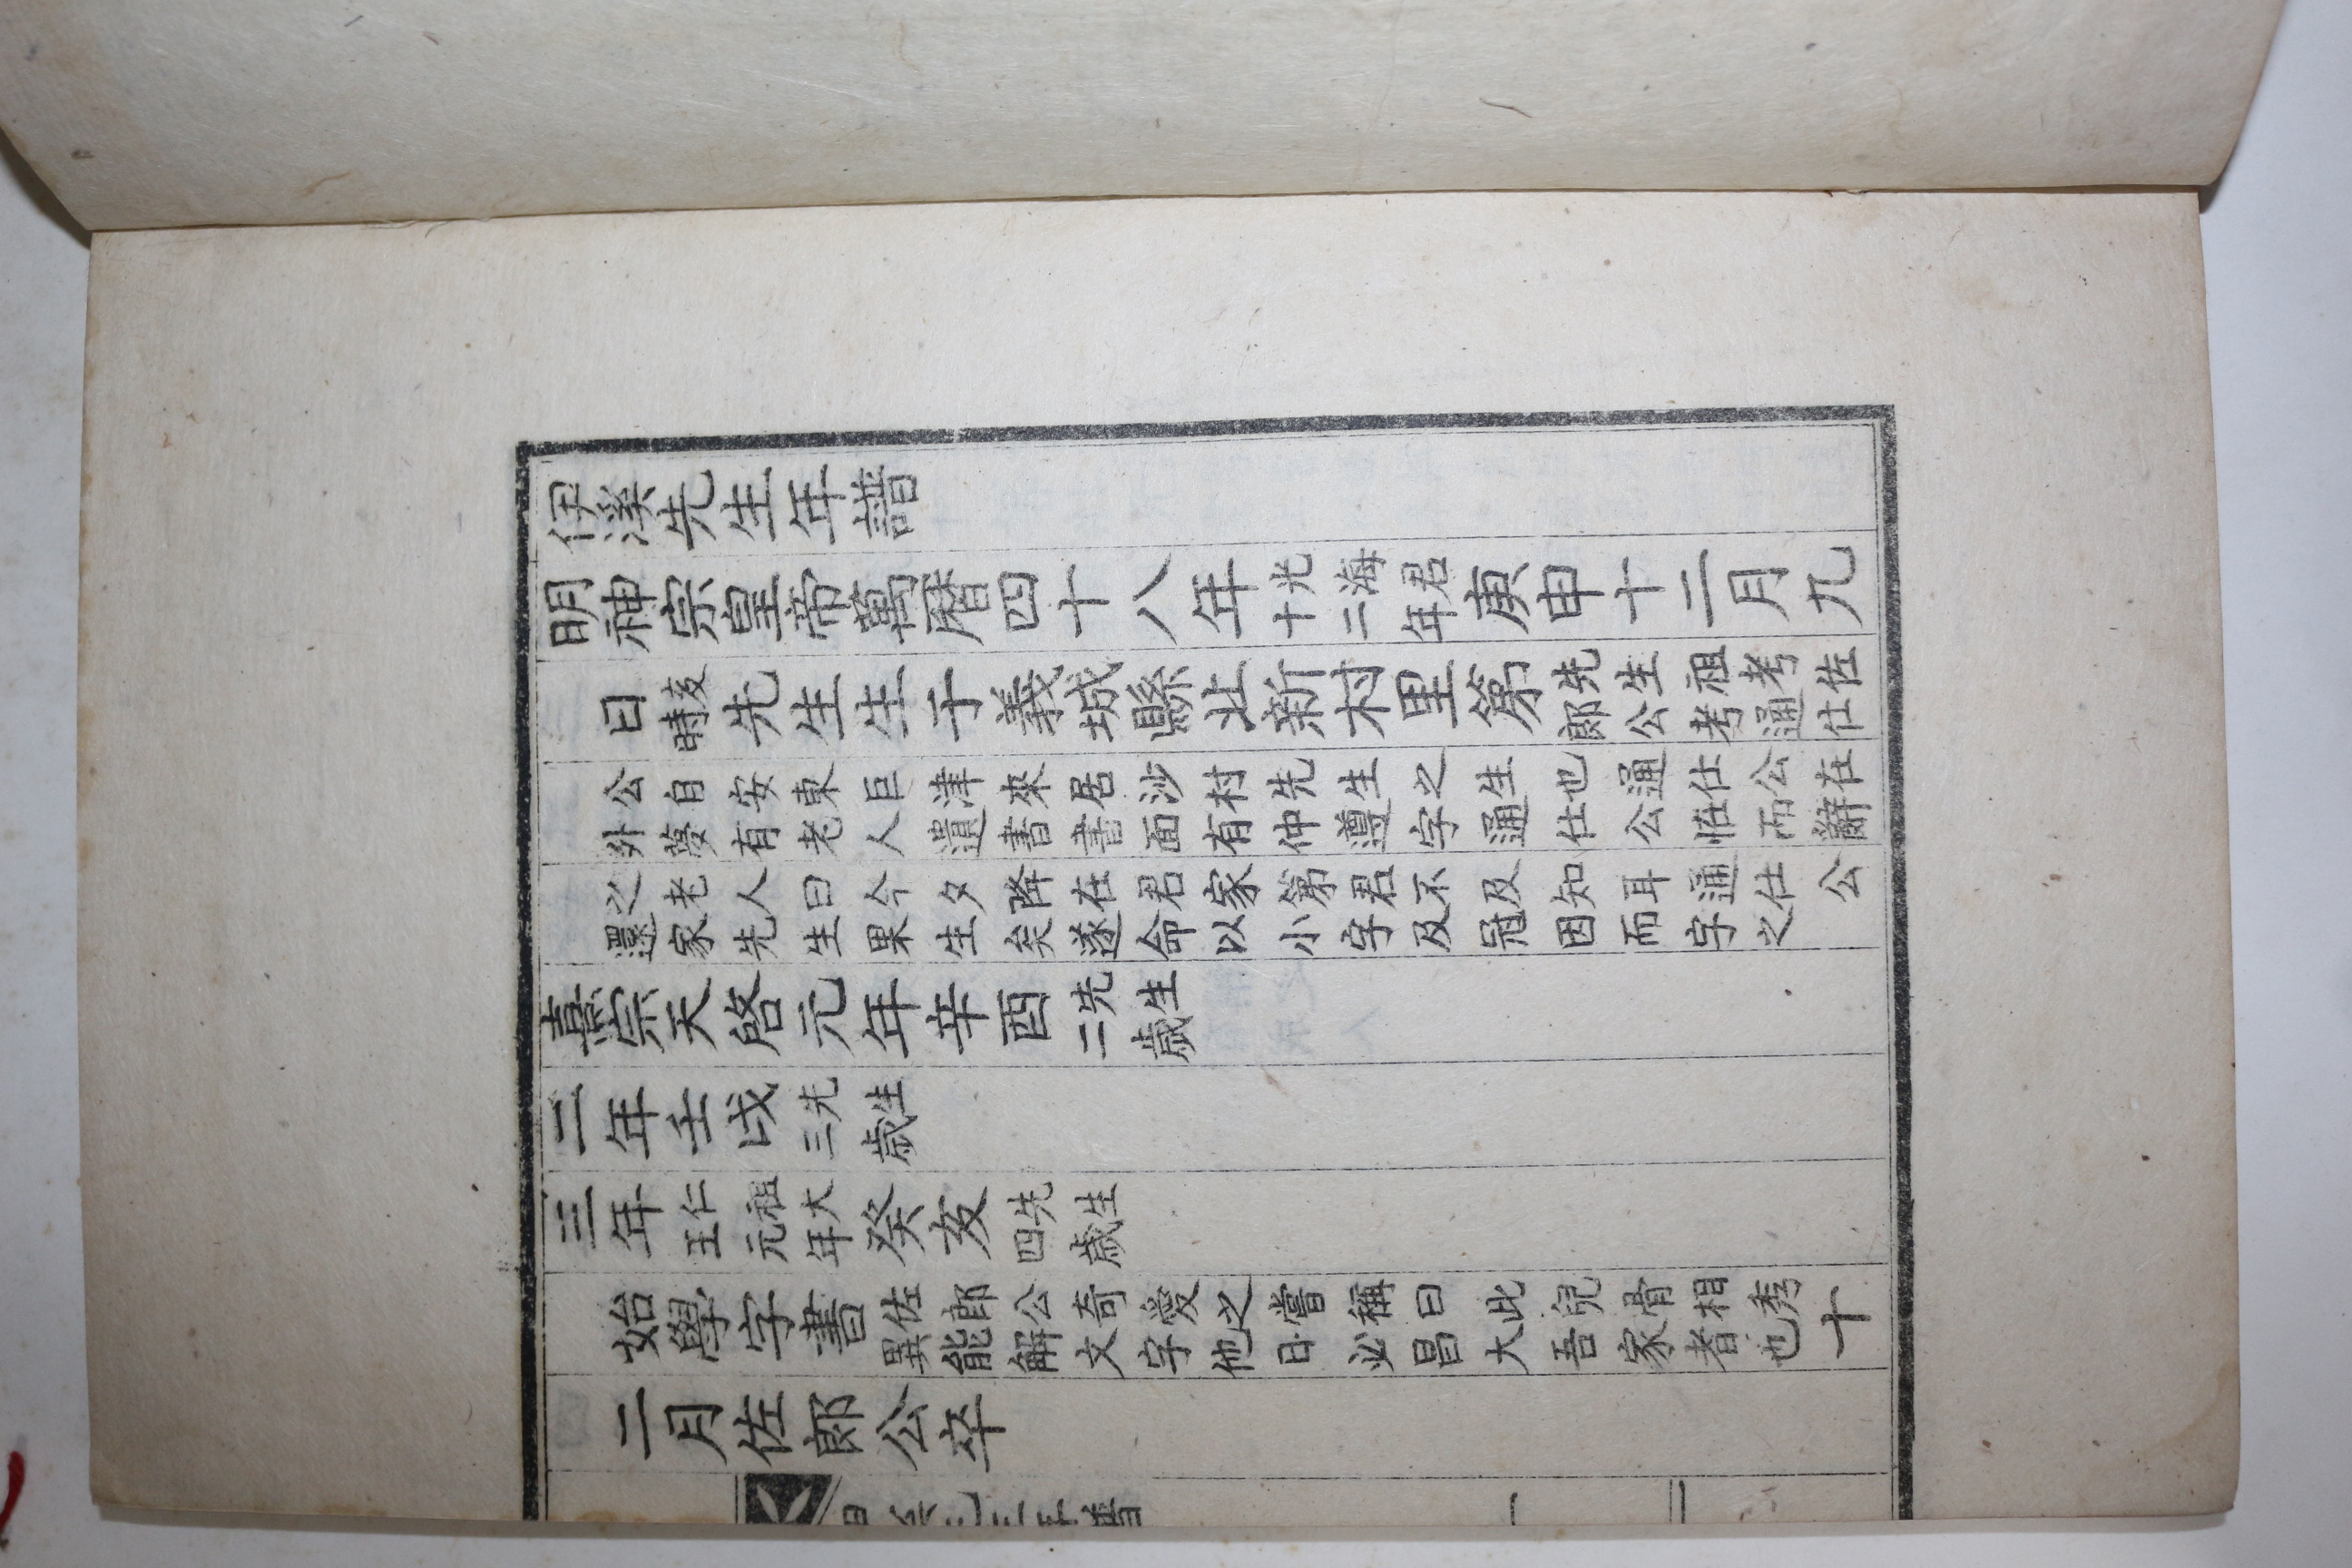 伊溪先生年譜
明神宗皇帝萬暦四十八年光海君十二年庚申十二月九
日亥時先生生于義城縣北新村里第先生祖考佐郎公考通仕
公自安東巨津來居沙村先生之生也通仕公在
外夢有老人遺書書面有仲遵字通仕公恠而辭
之老人曰今夕降在君家第君不及知耳通仕公
還家先生果生矣遂命以小字及冠因而字之
熹宗天啓元年辛酉先生二歳
二年壬戌先生三歳
三年仁祖大王元年癸亥先生四歳
始學字書佐郎公奇愛之嘗稱曰此兒骨相秀異能解文字他日必昌大吾家者也十
二月佐郎公卒